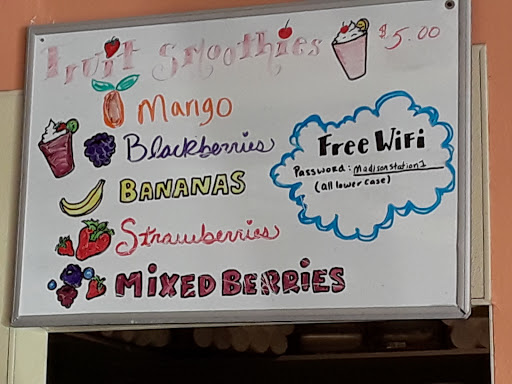 Fruit Smoothies $5.00
Mango
Blackberries
BANANAS
Strawberries
MIXED BERRIES
Free WiFi
Password: Madisonstation1
(all lower case)